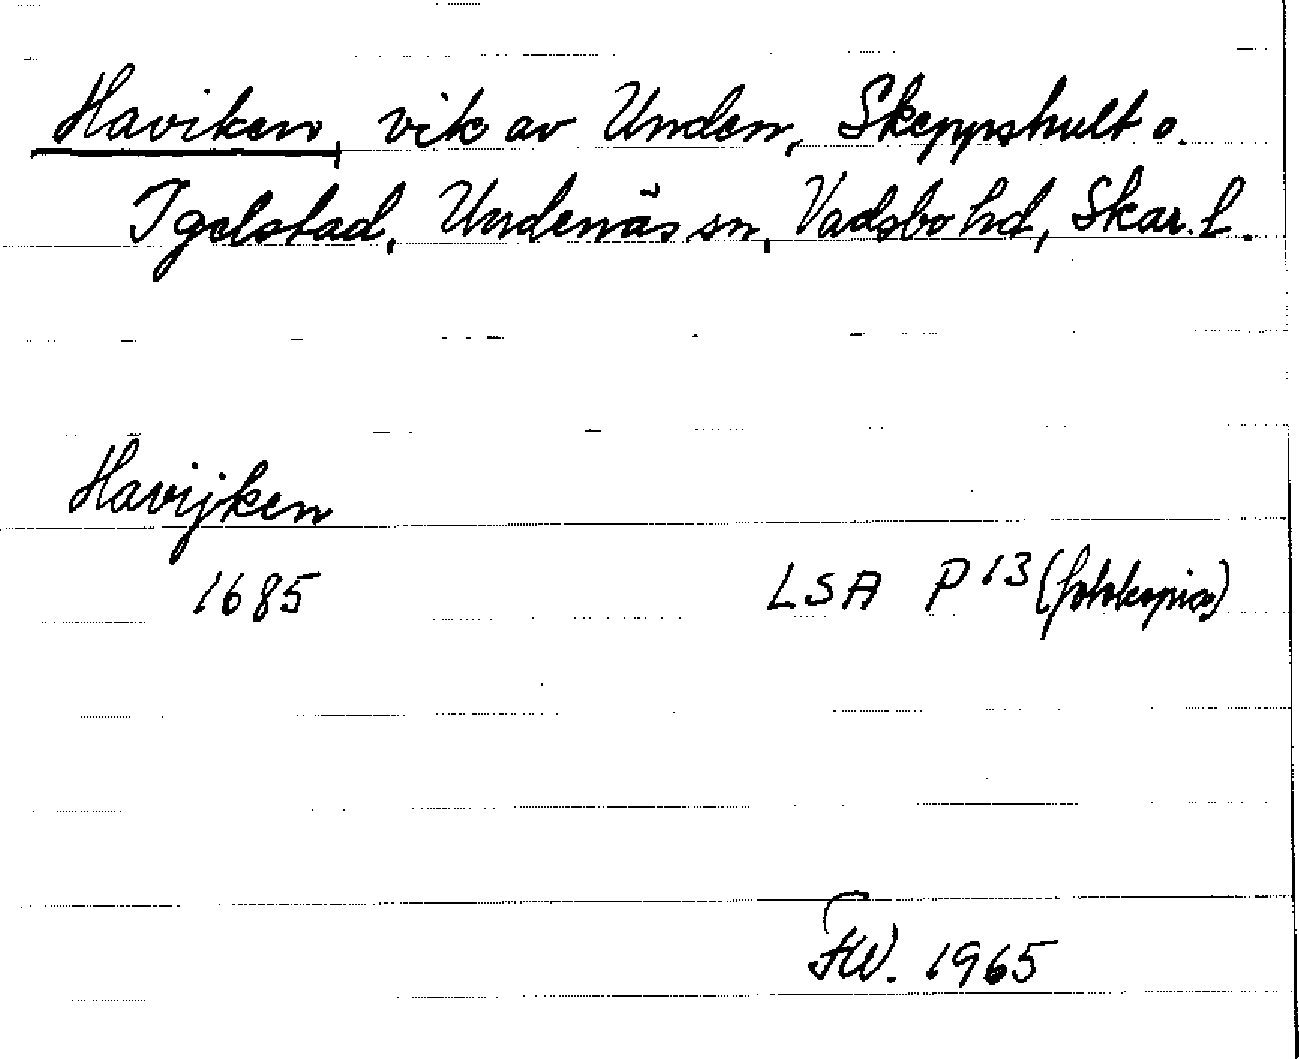 Haviken, vik av Unden, Skeppshult o.
Igelstad, Undenäs sn, Vadsbo hd, Skar. l.
Havijken
1685 LSA P 13 (fotokopia)
FW. 1965